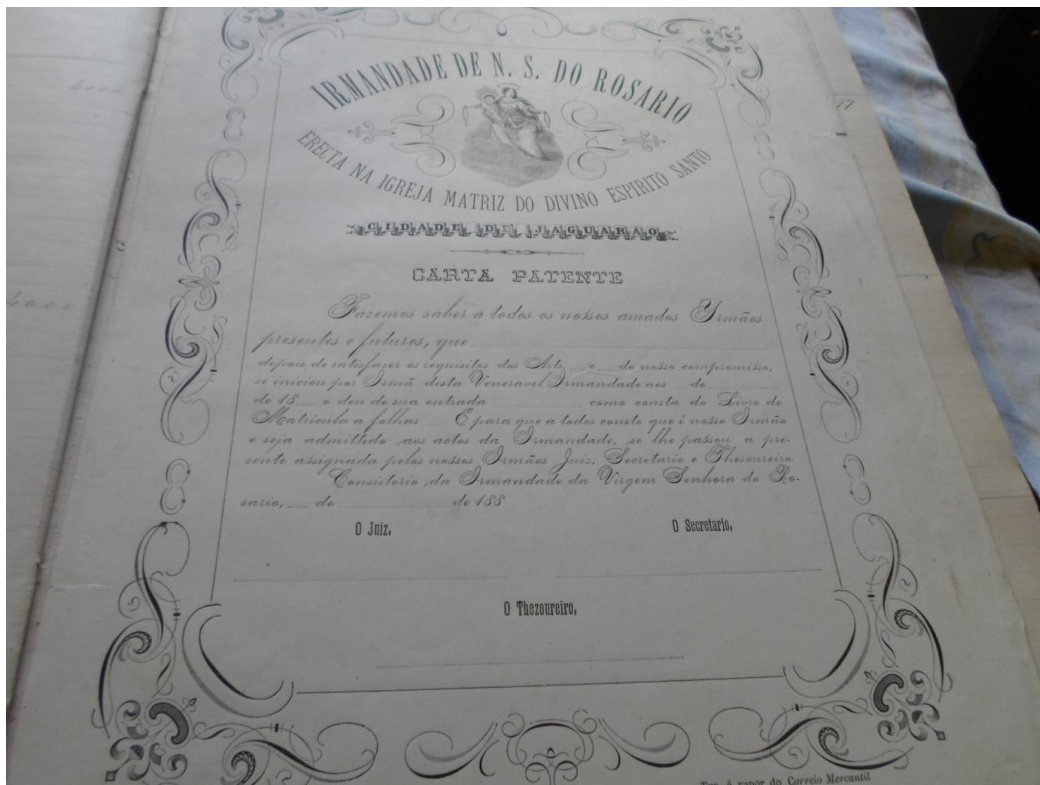 IRMANDADE DE N. S. DO ROSARIO
ERECTA NA IGREJA MATRIZ DO DIVINO ESPIRITO SANTO
CIDADE DE JAGUARÃO
CARTA PATENTE
Fazemos saber a todos os nossos amados Irmãos
presentes e futuros, que
depois de satisfazer os requisitos dos Arts. e do nosso compromisso,
se iniciou por Irmã desta Veneravel Irmandade aos de
de 18 e deu de sua entrada como consta do Livro de
Matricula a folhas E para que a todos conste que é nosso Irmão
e seja admittido aos actos da Irmandade, se lhe passou a pre-
sente assignada pelos nossos Irmãos Juiz, Secretario e Thesoureiro.
Consistorio da Irmandade da Virgem Senhora do Ro-
sario, de de 188
O Juiz,
O Secretario,
O Thezoureiro,
á vapor do Correio Mercantil
77